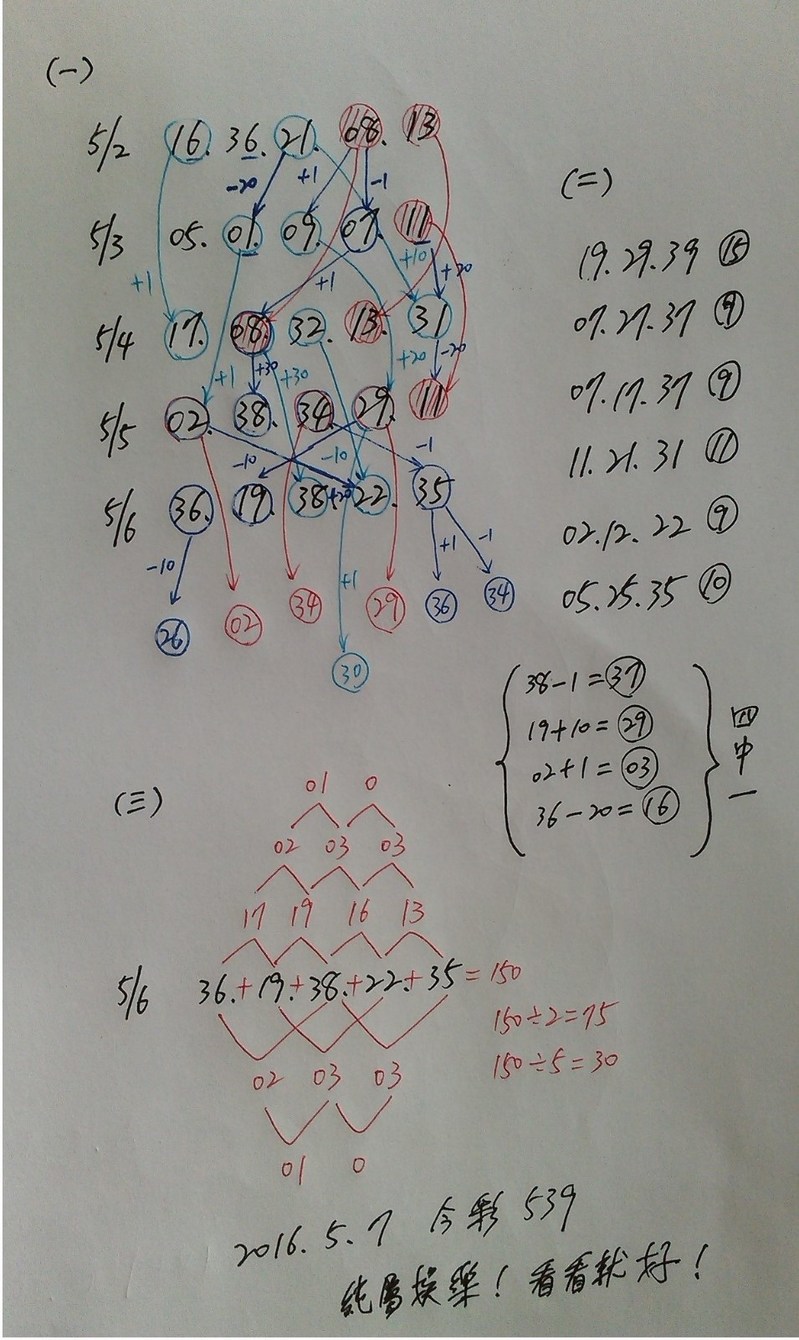 (一)
5/2 16. 36. 21. 08. 13
-20 +1 -1
5/3 05. 01. 09. 07. 11
+1 +1 +10 +20
5/4 17. 08. 32. 13. 31
+1 +30 +30 +20 -20
5/5 02. 38. 34. 29. 11
-10 -10 -1
5/6 36. 19. 38 +20 22. 35
-10 +1 +1 -1
26 02 34 29 36 34
30
(二)
19. 29. 39 15
07. 27. 37 9
07. 17. 37 9
11. 21. 31 11
02. 12. 22 9
05. 25. 35 10
38-1=37
19+10=29
02+1=03
36-20=16
四中一
(三)
01 0
02 03 03
17 19 16 13
5/6 36.+19.+38.+22.+35=150
150÷2=75
150÷5=30
02 03 03
01 0
2016.5.7 今彩539
純屬娛樂！看看就好！